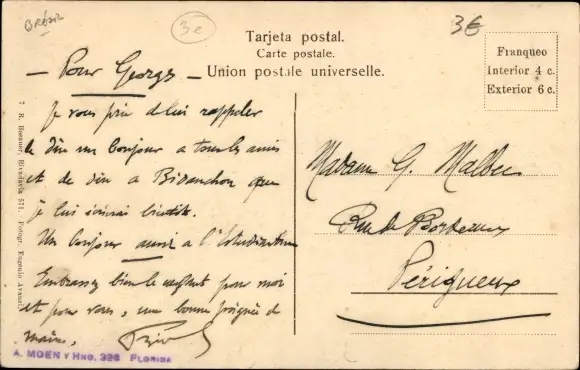 BRÉSIL
3e
3€
Tarjeta postal.
Carte postale.
Union postale universelle.
Franqueo
Interior 4 c.
Exterior 6 c.
7 R. Rosauer, Rivadavia 571. Fotogr. Eugenio Avanzi
— Pour Georges —
Je vous prie de lui rappeler
de dire un bonjour a tous les amis
et de dire a que
je lui écrirai bientôt.
Un bonjour aussi a l'Estudiantina
Embrassez bien le enfant pour moi
et pour vous, une bonne poignée de
mains.
A. MOEN Y HNO. 326 FLORIDA
Madame G.
Rue de Bordeaux
Périgueux